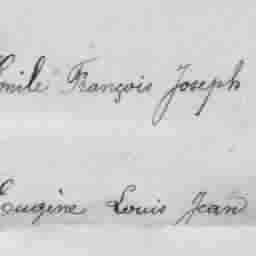 Emile François Joseph
Eugène Louis Jean